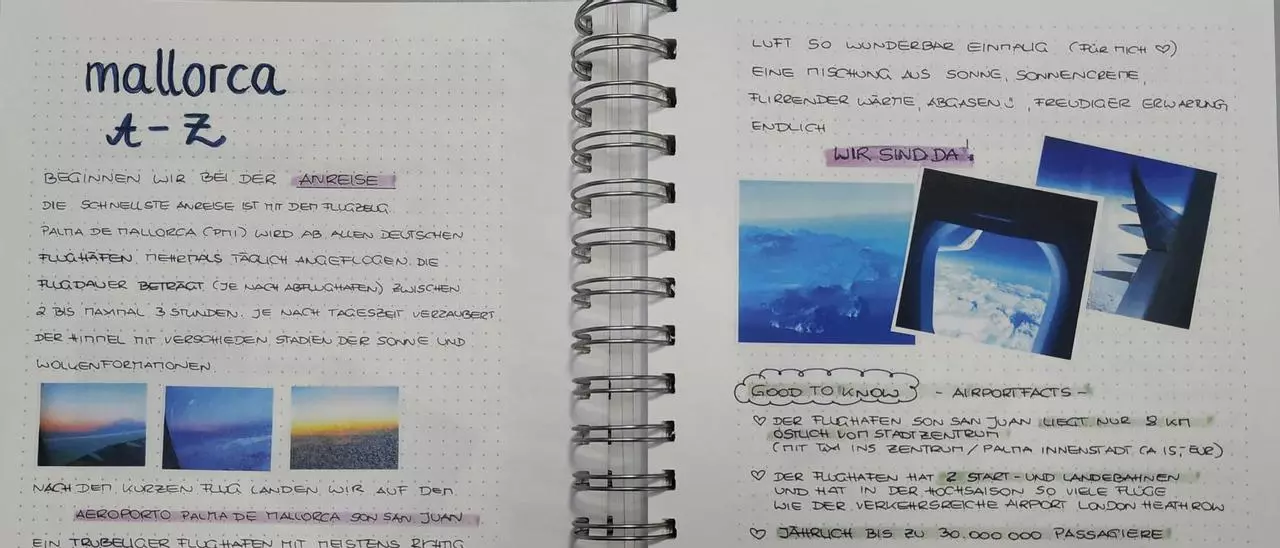 mallorca
A-Z
BEGINNEN WIR BEI DER ANREISE!
DIE SCHNELLSTE ANREISE IST MIT DEM FLUGZEUG
PALMA DE MALLORCA (PMI) WIRD AB ALLEN DEUTSCHEN
FLUGHÄFEN MEHRMALS TÄGLICH ANGEFLOGEN. DIE
FLUGDAUER BETRÄGT (JE NACH ABFLUGHAFEN) ZWISCHEN
2 BIS MAXIMAL 3 STUNDEN. JE NACH TAGESZEIT VERZAUBERT
DER HIMMEL MIT VERSCHIEDEN. STADIEN DER SONNE UND
WOLKENFORMATIONEN.
NACH DEM KURZEN FLUG LANDEN WIR AUF DEM
AEROPORTO PALMA DE MALLORCA SON SAN JUAN
EIN TRUBELIGER FLUGHAFEN MIT MEISTENS RICHTIG
LUFT SO WUNDERBAR EINMALIG (FÜR MICH ♡)
EINE MISCHUNG AUS SONNE, SONNENCREME,
FLIRRENDER WÄRME, ABGASEN, FREUDIGER ERWARTUNG
ENDLICH
WIR SIND DA!
GOOD TO KNOW - AIRPORTFACTS -
♡ DER FLUGHAFEN SON SAN JUAN LIEGT NUR 8 KM
ÖSTLICH VOM STADTZENTRUM
(MIT TAXI INS ZENTRUM / PALMA INNENSTADT CA 15,- EUR)
♡ DER FLUGHAFEN HAT 2 START- UND LANDEBAHNEN
UND HAT IN DER HOCHSAISON SO VIELE FLÜGE
WIE DER VERKEHRSREICHE AIRPORT LONDON HEATHROW
♡ JÄHRLICH BIS ZU 30.000 000 PASSAGIERE